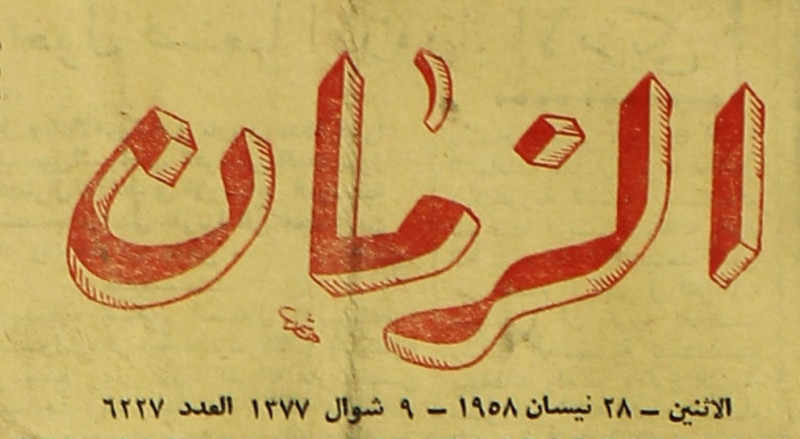 الزمان
الاثنين - ٢٨ نيسان ١٩٥٨ - ٩ شوال ١٣٧٧ العدد ٦٢٢٧